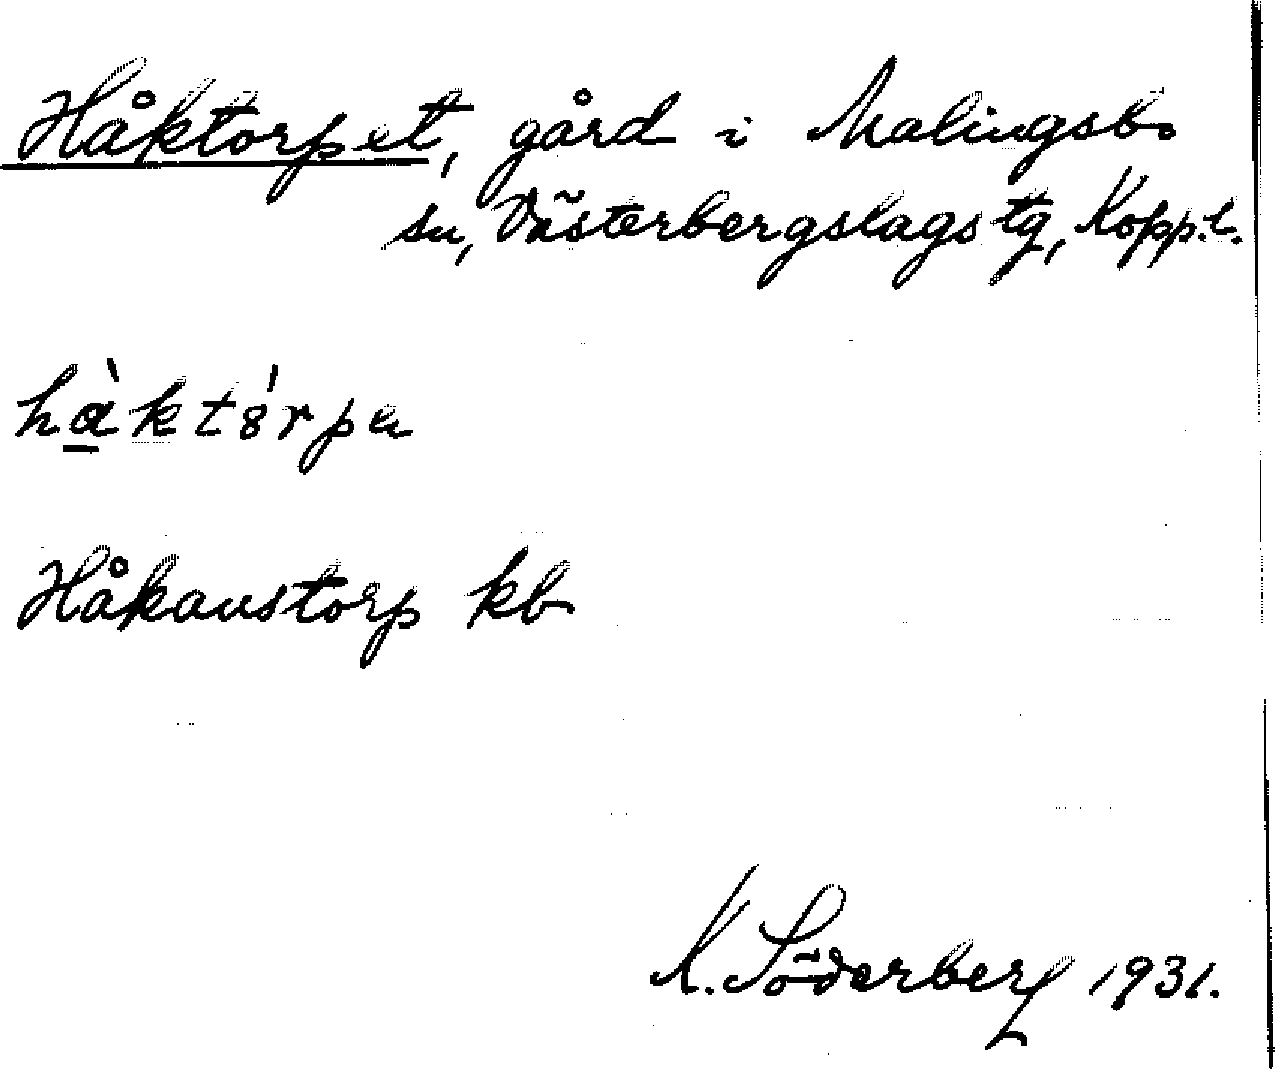 Håktorpet, gård i Malingsbo
sn, Västerbergslags tg, Kopp.l.
hàktórpe
Håkanstorp kb
K. Söderberg 1931.